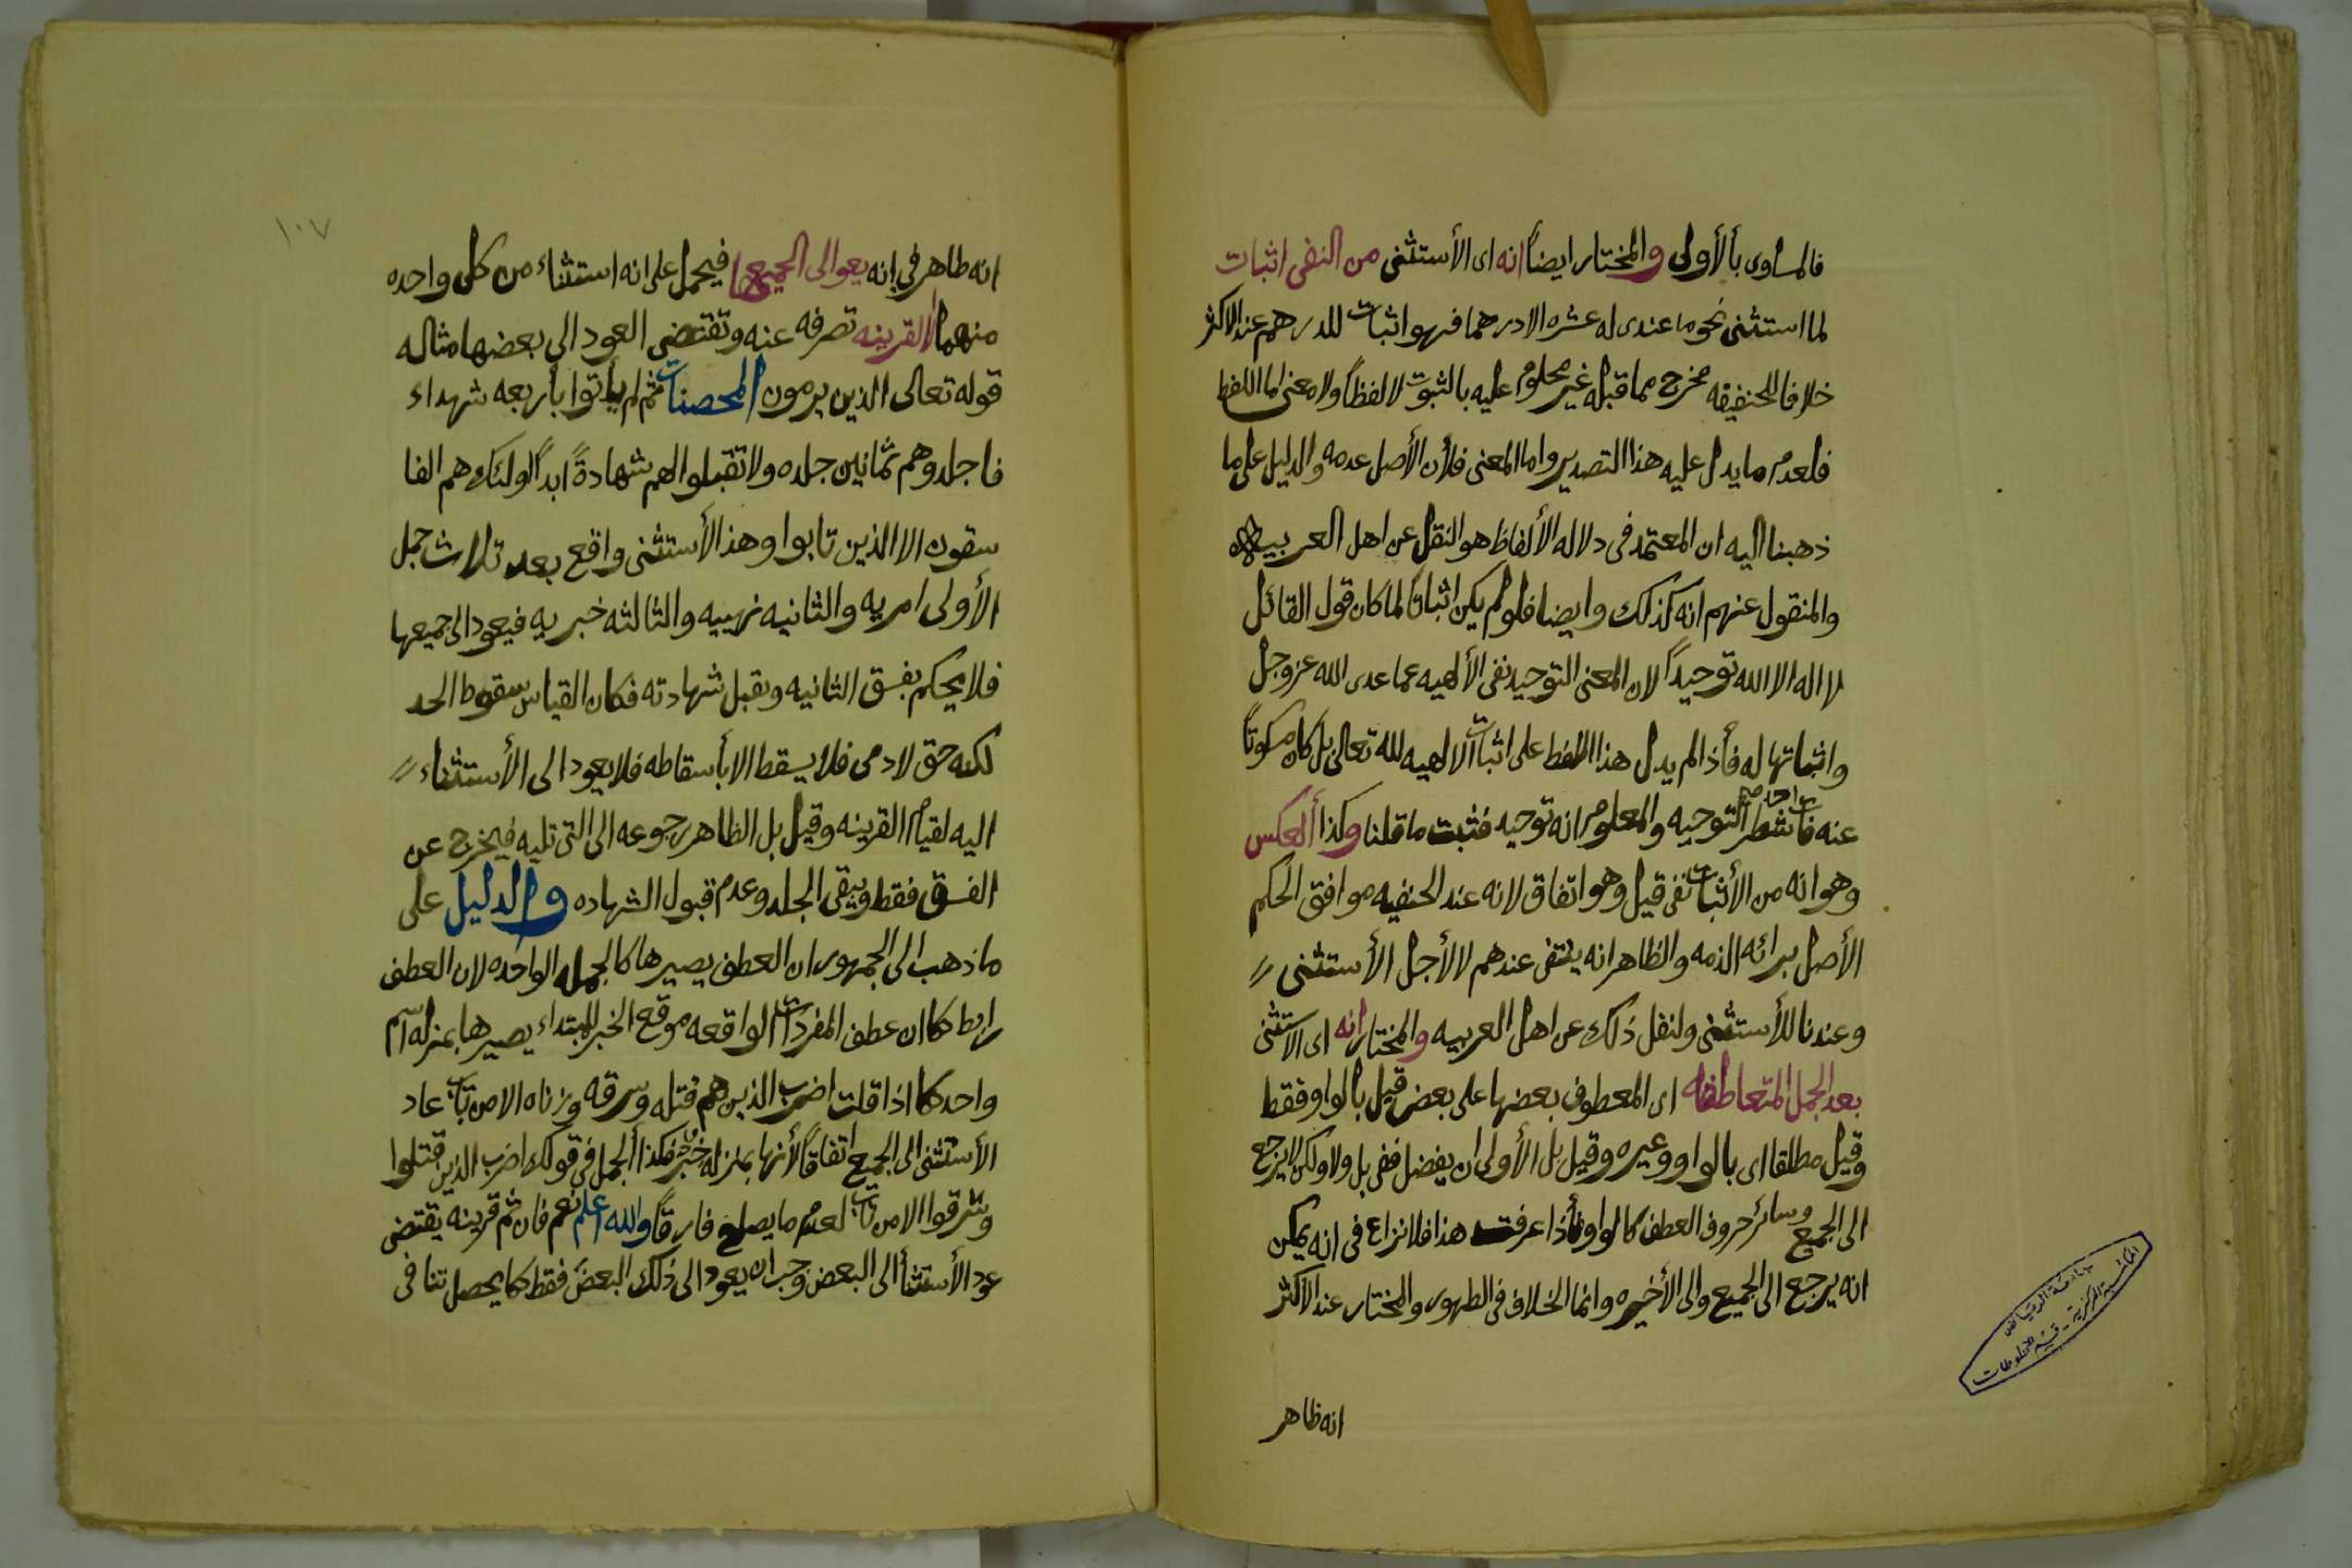 فالمساوى بألأولى والمختار ايضاً انه اى الأستثنى من النفى اثبات
لما استثنى نحو ما عندى له عشره الا درهما فهو اثبات للدرهم عند الاكثر
خلافا للحنفيقه مخرج مما قبله غير محلوم عليه بالثبوت لا لفظاً ولا معنى اما اللفظ
فلعدم ما يدل عليه هذا التصدير واما المعنى فلأن الأصل عدمه والدليل على ما
ذهبنا اليه ان المعتمد فى دلاله الألفاظ هو النقل عن اهل العربيه
والمنقول عنهم انه كذلك وايضا فلو لم يكن اثباتاً لما كان قول القائل
لا اله الا الله توحيداً لان المعنى التوحيد نفى الألهيه عما عدى الله عز وجل
واثباتها له فأذا لم يدل هذا اللفظ على اثبات الالهيه لله تعالى بل كان مسكوتاً
عنه فات احد شطر التوحيه والمعلوم انه توحيد فثبت ما قلنا وكذا ألعكس
وهو انه من الأثبات نفى قيل وهو اتفاق لانه عند الحنفيه موافق الحكم
الأصل برائه الذمه والظاهر انه ينتفى عندهم لا لأجل الأستثنى
وعندنا للأستثنى ولنفل ذلك عن اهل العربيه والمختار انه اى الاستثنى
بعد الجمل المتعاطفه اى المعطوف بعضها على بعض قيل بالواو فقط
وقيل مطلقا اى بالواو وغيره وقيل بل الأولى ان يفضل ففى بل ولا ولكن لا يرجع
الى الجميع وسائر حروف العطف كالواو فأذا عرفت هذا فلا نزاع فى انه يمكن
انه يرجع الى الجميع والى الأخيره وانما الخلاف فى الظهور والمختار عند الاكثر
انه ظاهر
جامعة الرياض
المكتبة المركزية - قسم المخطوطات
١٠٧
انه ظاهر في انه يعو الى الجميعها فيحمل على انه استثناء من كل واحده
منهما الا لقرينه تصرفه عنه وتقتضى العود الى بعضها مثاله
قوله تعالى الذين يرمون المحصنات ثم لم يأتوا بأربعه شهداء
فاجلدوهم ثمانين جلده ولا تقبلوا لهم شهادةً ابداً اولئك هم الفا
سقون الا الذين تابوا وهذ الأستثنى واقع بعد ثلاث جمل
الأولى امريه والثانيه نهييه والثالثه خبريه فيعود الى جميعها
فلا يحكم بفسق الثانيه وبقبل شهادته فكان القياس سقوط الحد
لكنه حق لادمى فلا يسقط الا بأسقاطه فلا يعود الى الأستثناء
اليه لقيام القرينه وقيل بل الظاهر رجوعه الى التى تليه فيخرج عن
الفسق فقط ويبقى الجلد وعدم قبول الشهاده والدليل على
ما ذهب الى الجمهور ان العطف يصيرها كالجمله الواحده لان العطف
رابط كما ان عطف المفردات الواقعه موقع الخبر للمبتداء يصيرها بمنزله اسم
واحد كما اذا قلت اضرب الذين هم قتله وسرقه وزناه الا من تاب عاد
الأستثنى الى الجميع اتفاقاً لأنها بمنزله خبر فكذا ألجمل فى قولك اضرب الذين قتلوا
وسرقوا الا من تاب لعدم ما يصلح فارقاً والله اعلم نعم فان ثم قرينه يقتضى
عود الأستثنأ الى البعض وجب ان يعود الى ذلك البعض فقط كما يحصل تنافى